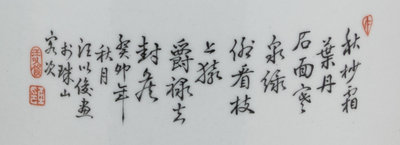 秋杪霜
葉丹
石面寒
泉綠
俯看枝
上猿
爵祿去
封侯
癸卯年
秋月
汪以俊畫
於珠山
客次